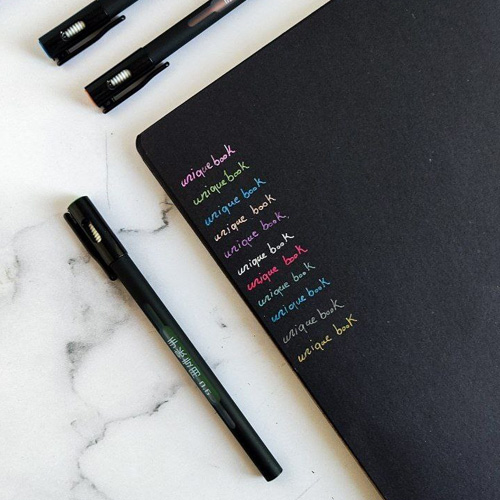 unique book
unique book
unique book
unique book
unique book
unique book
unique book
unique book
unique book
unique book
unique book